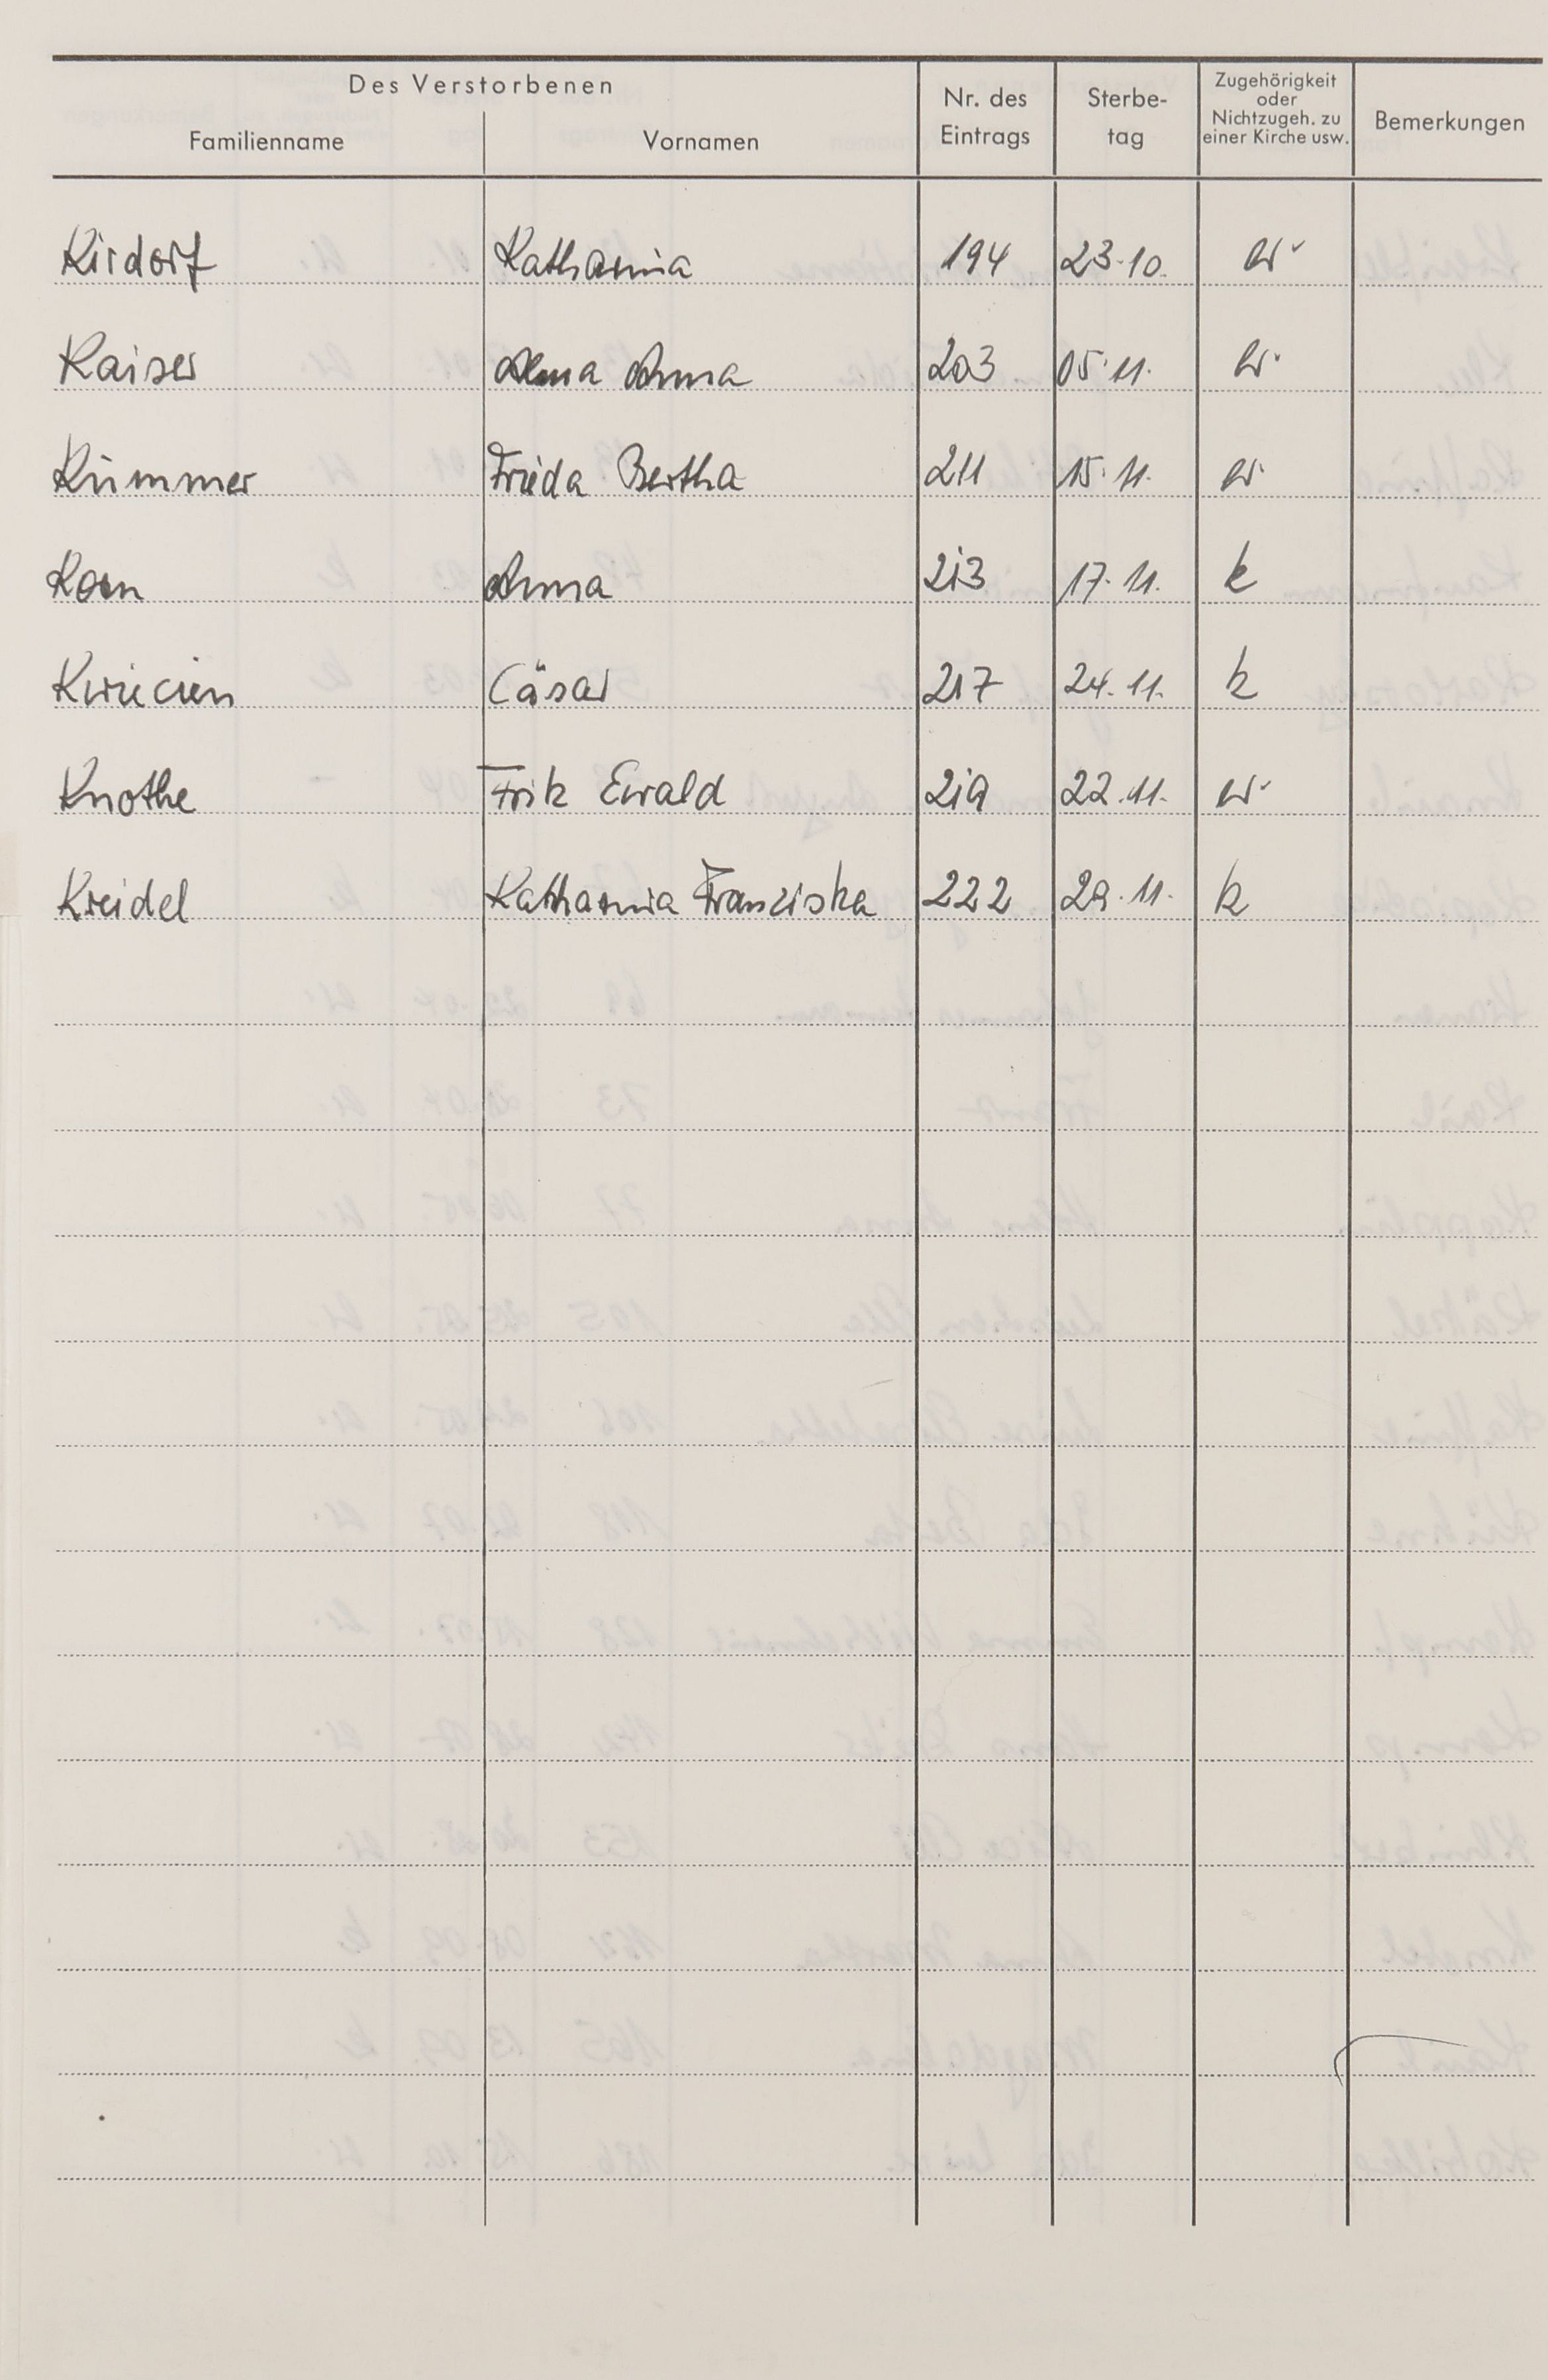 Des Verstorbenen
Familienname Vornamen Nr. des Eintrags Sterbe-tag Zugehörigkeit oder Nichtzugeh. zu einer Kirche usw. Bemerkungen
Kirdorf Katharina 194 23.10. ev.
Kaiser Anna 203 05.11. ev.
Kümmer Frieda Bertha 211 15.11. ev.
Korn Anna 213 17.11. k
Kwiecien Cäsar 217 24.11. k
Knothe Fritz Ewald 219 22.11. ev.
Kreidel Katharina Franziska 222 29.11. k